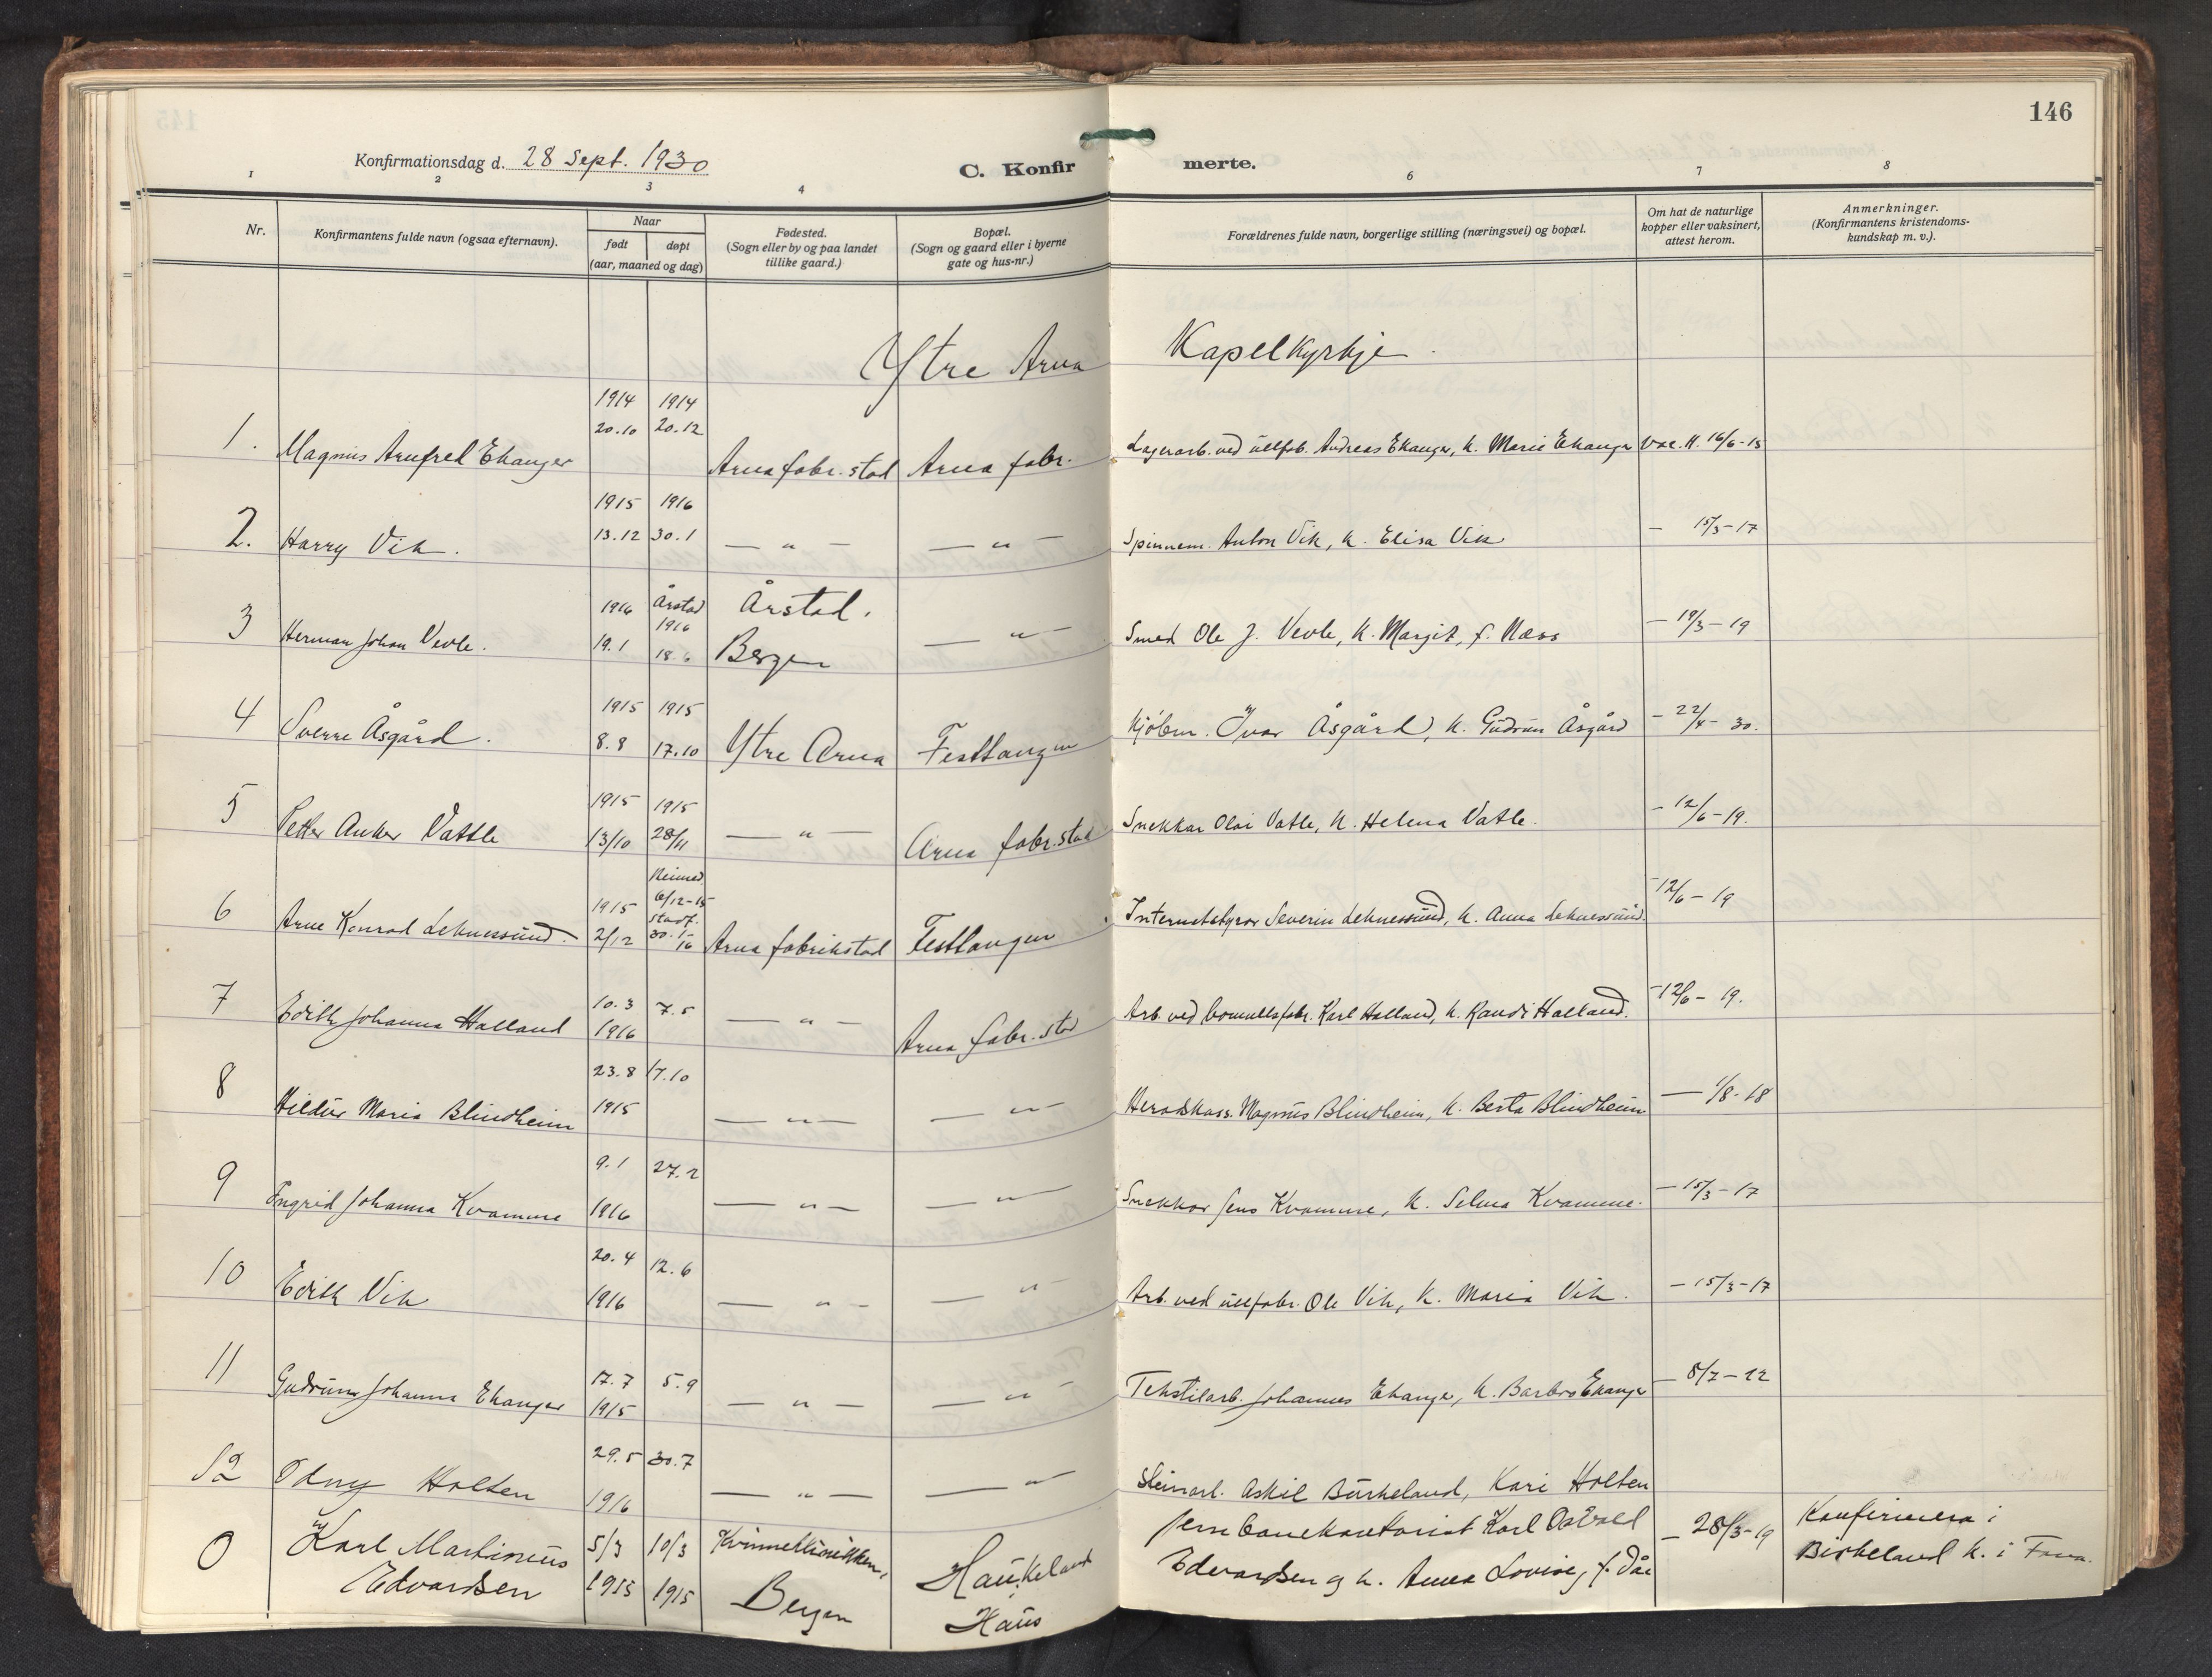 146
Konfirmationsdag d. 28 Sept. 1930
C. Konfirmerte.
1 2 3 4 6 7 8
Nr.
Konfirmantens fulde navn (ogsaa efternavn).
Naar
født døpt
(aar, maaned og dag)
Fødested.
(Sogn eller by og paa landet
tillike gaard.)
Bopæl.
(Sogn og gaard eller i byerne
gate og hus-nr.)
Forældrenes fulde navn, borgerlige stilling (næringsvei) og bopæl.
Om hat de naturlige
kopper eller vaksinert,
attest herom.
Anmerkninger.
(Konfirmantens kristendoms-
kundskap m. v.).
Ytre Arna Kapelkyrkje.
1914 1914
20.10 20.12
1. Magnus Arnfred Ekanger Arna fabr. stad Arna fabr. Lagerarb. ved ullfab. Andreas Ekanger, k. Marie Ekanger Vac. H. 16/6-15
1915 1916
2. Harry Vik. 13.12 30.1 — " — — " — Spinnem. Anton Vik, k. Elisa Vik — 15/3-17
1916 Årstad 1916 Årstad.
3 Herman Johan Vevle. 19.1 18.6 Bergen — " — Smed Ole J. Vevle, k. Margit, f. Næss — 19/3-19
1915 1915
4 Sverre Åsgård. 8.8 17.10 Ytre Arna Festtangen Kjøbm. Ivar Åsgård, k. Gudrun Åsgård — 22/4-30.
1915 1915
5 Petter Anker Vattle 13/10 28/11 — " — Arna fabr. stad Snekkar Olai Vatle, k. Helena Vatle. — 12/6-19.
1915 Heimed. 6/12-15 stadf.
6 Arne Konrad Leknessund. 2/12 30.1-16 Arna fabrikstad Festtangen Internatstyrar Severin Leknessund, k. Anna Leknessund. — 12/6-19
10.3 7.5
7 Edith Johanna Halland 1916 — " — Arna fabr. stad Arb. ved bomullsfabr. Karl Halland, k. Randi Halland. — 12/6-19.
23.8 17.10
8 Hildur Maria Blindheim 1915 — " — — " — Heradskass. Magnus Blindheim, k. Berta Blindheim — 1/8-18
9.1 27.2
9 Ingrid Johanna Kvamme 1916 — " — — " — Snekkar Jens Kvamme, k. Selma Kvamme. — 15/3-17
20.4 12.6
10 Edith Vik 1916 — " — — " — Arb. ved ullfabr. Ole Vik, k. Maria Vik. — 15/3-17
17.7 5.9
11 Gudrun Johanna Ekanger 1915 — " — — " — Tekstilarb. Johannes Ekanger, k. Barbro Ekanger — 8/7-22
29.5 30.7
12 Odny Holten 1916 — " — — " — Steinarb. Askil Burkeland, Kari Holten
0 Karl Martinius 5/3 10/3 Kvinneklinikken, Haukeland Jernbanekontorist Karl Ostvald — 28/3-19 Konfirmera i
Edvardsen 1915 1915 Bergen Haus Edvardsen og k. Anna Lovise, f. Dåe Birkeland k. i Fana.